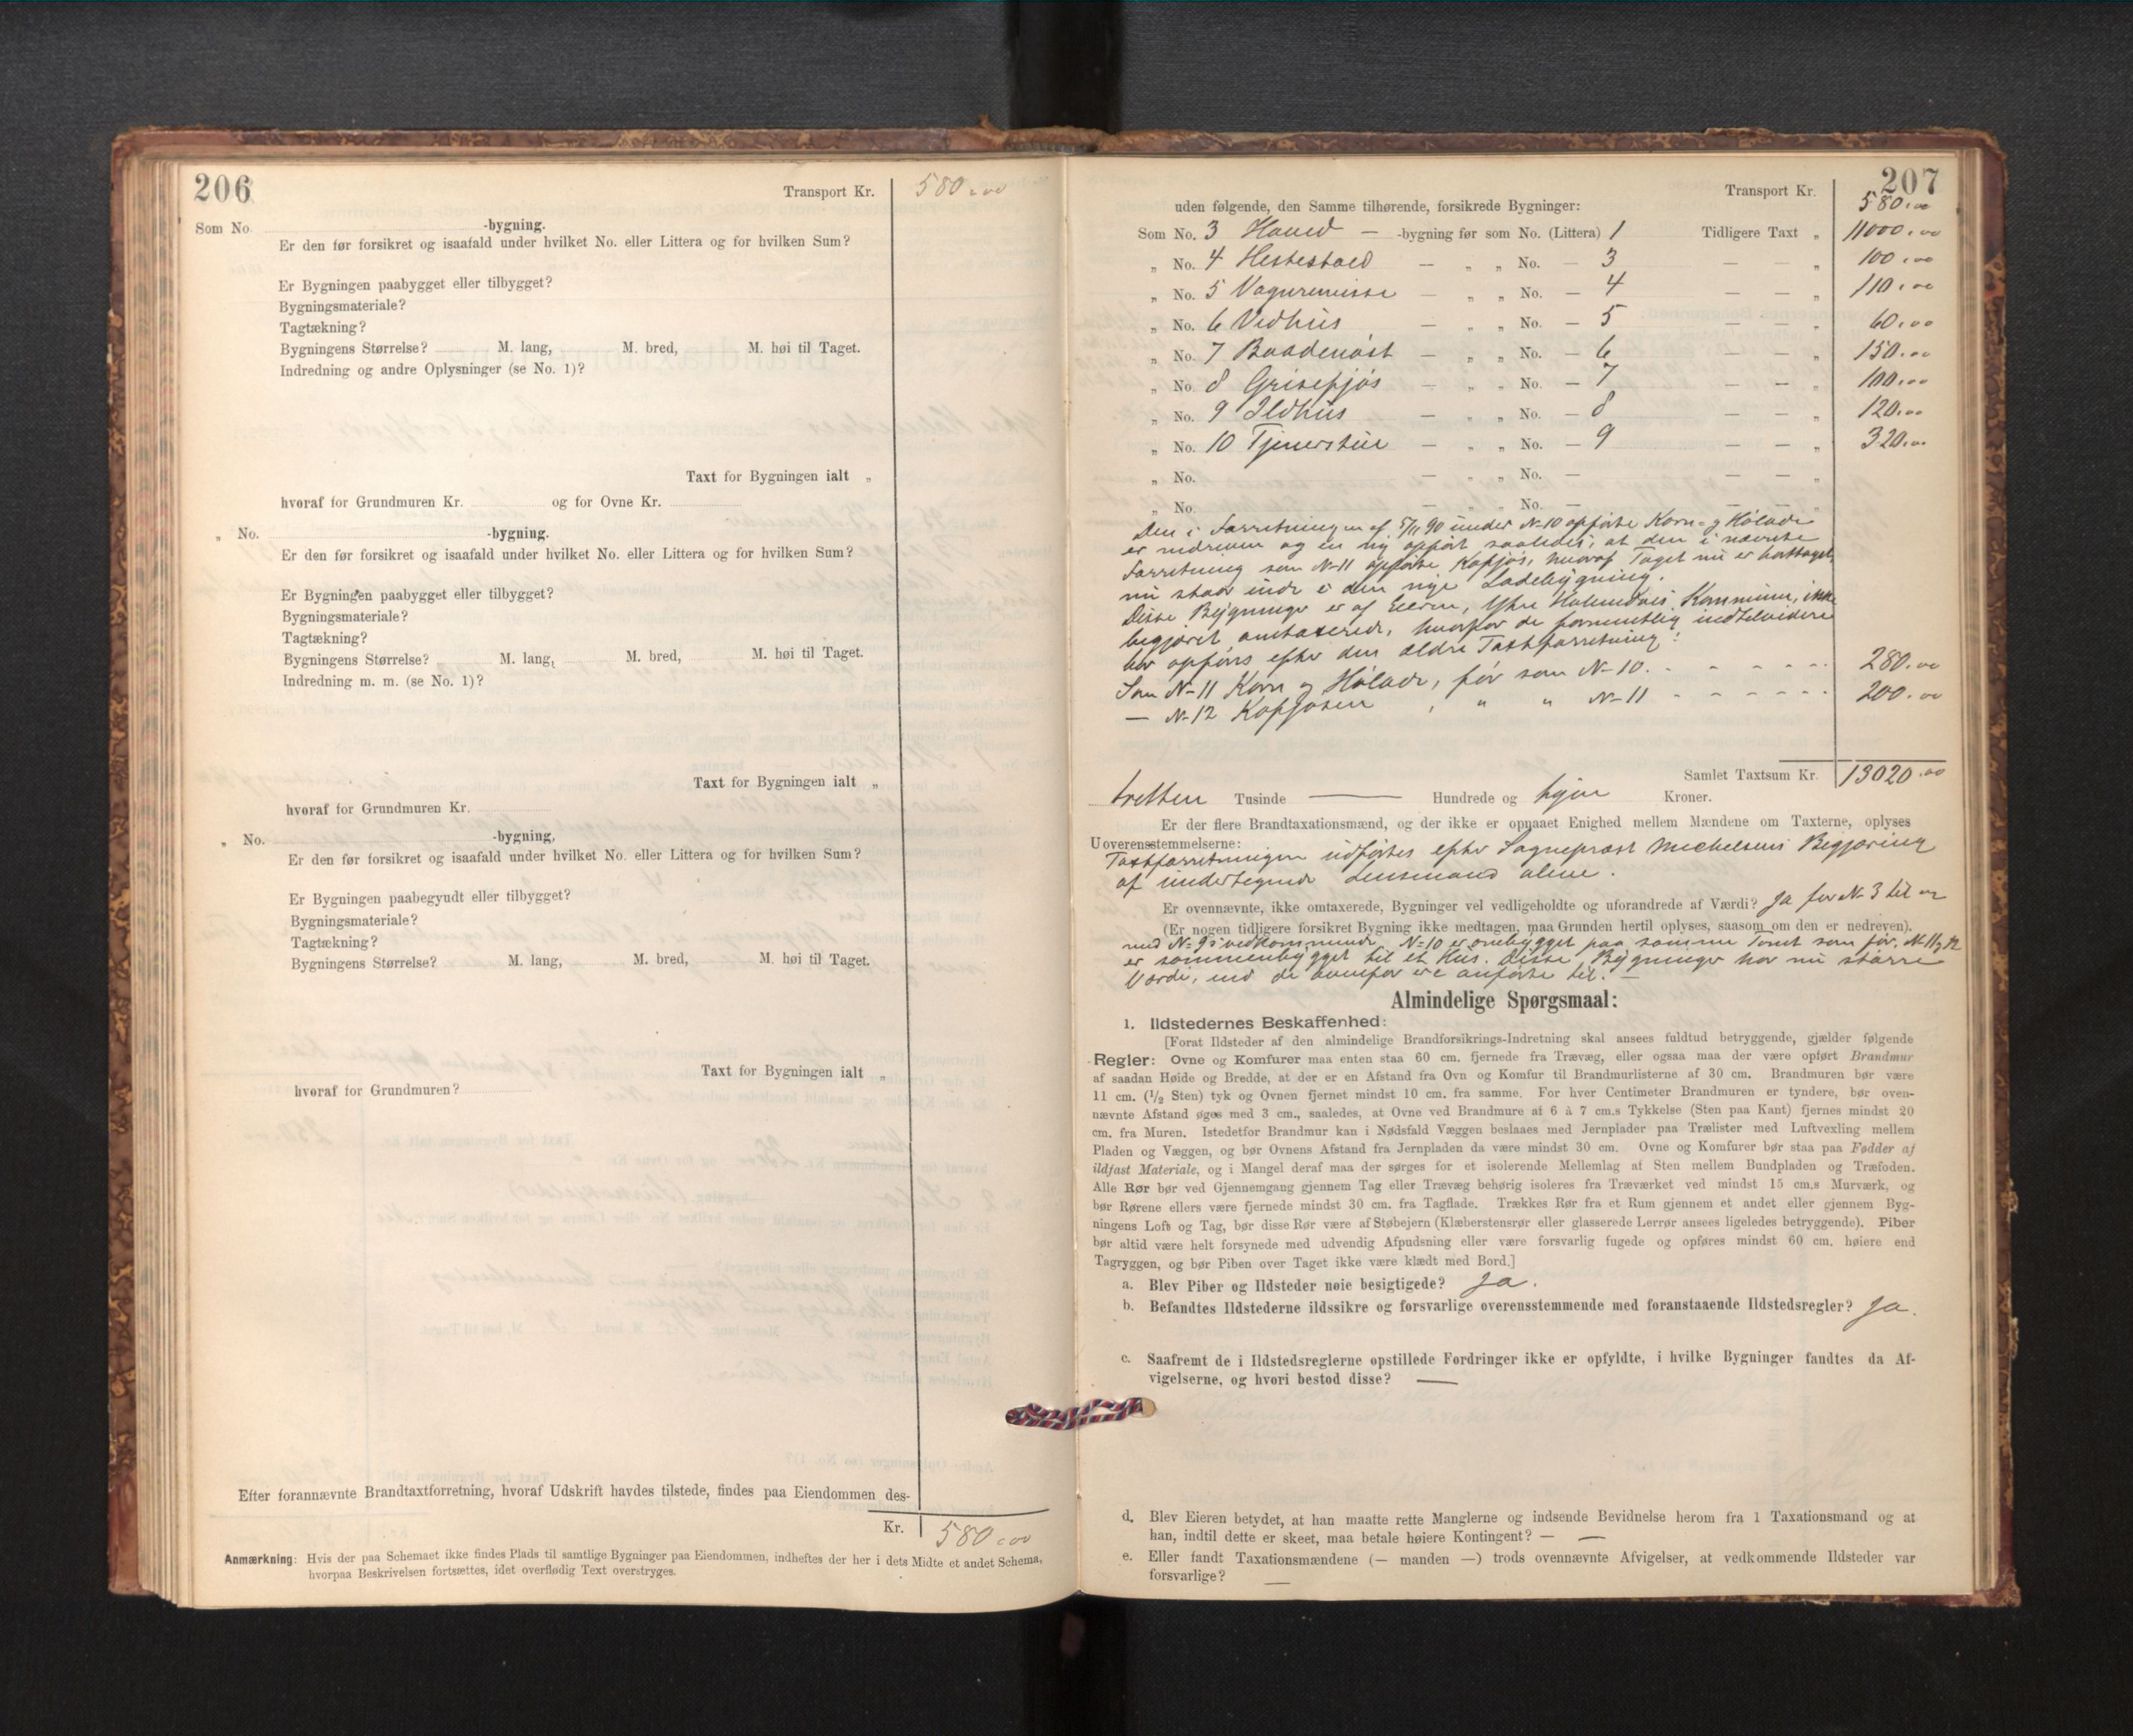 206
Transport Kr. 580.00
Som No. -bygning.
Er den før forsikret og isaafald under hvilket No. eller Littera og for hvilken Sum?
Er Bygningen paabygget eller tilbygget?
Bygningsmateriale?
Tagtækning?
Bygningens Størrelse? M. lang, M. bred, M. høi til Taget.
Indredning og andre Oplysninger (se No. 1)?
Taxt for Bygningen ialt „
hvoraf for Grundmuren Kr. og for Ovne Kr.
„ No. -bygning.
Er den før forsikret og isaafald under hvilket No. eller Littera og for hvilken Sum?
Er Bygningen paabygget eller tilbygget?
Bygningsmateriale?
Tagtækning?
Bygningens Størrelse? M. lang, M. bred, M. høi til Taget.
Indredning m. m. (se No. 1)?
Taxt for Bygningen ialt „
hvoraf for Grundmuren Kr.
„ No. -bygning,
Er den før forsikret og isaafald under hvilket No. eller Littera og for hvilken Sum?
Er Bygningen paabegyndt eller tilbygget?
Bygningsmateriale?
Tagtækning?
Bygningens Størrelse? M. lang, M. bred, M. høi til Taget.
Taxt for Bygningen ialt „
hvoraf for Grundmuren?
Efter forannævnte Brandtaxtforretning, hvoraf Udskrift havdes tilstede, findes paa Eiendommen des-
Kr. 580.00
Anmærkning: Hvis der paa Schemaet ikke findes Plads til samtlige Bygninger paa Eiendommen, indheftes der her i dets Midte et andet Schema,
hvorpaa Beskrivelsen fortsættes, idet overflødig Text overstryges.
207
Transport Kr. 580.00
uden følgende, den Samme tilhørende, forsikrede Bygninger:
Som No. 3 Hoved — -bygning før som No. (Littera) 1 Tidligere Taxt „ 11000.00
„ No. 4 Hestestald — „ „ No. — 3 — — „ 100.00
„ No. 5 Vognremisse — „ „ No. — 4 — — „ 110.00
„ No. 6 Vedhus — „ „ No. — 5 — — „ 60.00
„ No. 7 Baadenøst — „ „ No. — 6 — — „ 150.00
„ No. 8 Grisefjøs — „ „ No. — 7 — — „ 100.00
„ No. 9 Ildhus — „ „ No. — 8 — — „ 120.00
„ No. 10 Tjenerstue — „ „ No. — 9 — — „ 320.00
„ No. — „ „ No. — — — „
„ No. — „ „ No. — — — „
Den i Forretningen af 5/11 90 under No 10 opførte Korn- og Hølade
er nedreven og en ny opført saaledes, at den i nævnte
Forretning som No 11 opførte Kofjøs, hvoraf Taget nu er borttaget,
nu staar inde i den nye Ladebygning.
Disse Bygninger er af Eieren, Ytre Holmedals Kommune, ikke
begjæret omtaxerede, hvorfor de formentlig indtilvidere
bør opføres efter den ældre Taxtforretning:
Som No 11 Korn og Hølade, før som No 10. - - - - - 280.00
— No 12 Kofjøsen , „ „ No 11 - - - - - 200.00
Samlet Taxtsum Kr. 13020.00
tretten Tusinde — Hundrede og tyve Kroner.
Er der flere Brandtaxationsmænd, og der ikke er opnaaet Enighed mellem Mændene om Taxterne, oplyses
Uoverensstemmelserne:
Taxtforretningen udførtes efter Sogneprest Michelsens Begjæring
af undertegnede Lensmand alene.
Er ovennævnte, ikke omtaxerede, Bygninger vel vedligeholdte og uforandrede af Værdi? Ja for No 3 til og
(Er nogen tidligere forsikret Bygning ikke medtagen, maa Grunden hertil oplyses, saasom om den er nedreven).
med No 9's vedkommende. No 10 er ombygget paa samme Tomt som før. No 11 og 12
er sammenbygget til et Hus. Disse Bygninger har nu større
Værdi, end de ovenfor ere anførte til. —
Almindelige Spørgsmaal:
1. Ildstedernes Beskaffenhed:
[Forat Ildsteder af den almindelige Brandforsikrings-Indretning skal ansees fuldtud betryggende, gjælder følgende
Regler: Ovne og Komfurer maa enten staa 60 cm. fjernede fra Trævæg, eller ogsaa maa der være opført Brandmur
af saadan Høide og Bredde, at der er en Afstand fra Ovn og Komfur til Brandmurlisterne af 30 cm. Brandmuren bør være
11 cm. (1/2 Sten) tyk og Ovnen fjernet mindst 10 cm. fra samme. For hver Centimeter Brandmuren er tyndere, bør oven-
nævnte Afstand øges med 3 cm., saaledes, at Ovne ved Brandmure af 6 à 7 cm.s Tykkelse (Sten paa Kant) fjernes mindst 20
cm. fra Muren. Istedetfor Brandmur kan i Nødsfald Væggen beslaaes med Jernplader paa Trælister med Luftvexling mellem
Pladen og Væggen, og bør Ovnens Afstand fra Jernpladen da være mindst 30 cm. Ovne og Komfurer bør staa paa Fødder af
ildfast Materiale, og i Mangel deraf maa der sørges for et isolerende Mellemlag af Sten mellem Bundpladen og Træfoden.
Alle Rør bør ved Gjennemgang gjennem Tag eller Trævæg behørig isoleres fra Træværket ved mindst 15 cm.s Murværk, og
bør Rørene ellers være fjernede mindst 30 cm. fra Tagflade. Trækkes Rør fra et Rum gjennem et andet eller gjennem Byg-
ningens Loft og Tag, bør disse Rør være af Støbejern (Klæberstensrør eller glasserede Lerrør ansees ligeledes betryggende). Piber
bør altid være helt forsynede med udvendig Afpudsning eller være forsvarlig fugede og opføres mindst 60 cm. høiere end
Tagryggen, og bør Piben over Taget ikke være klædt med Bord.]
a. Blev Piber og Ildsteder nøie besigtigede? Ja.
b. Befandtes Ildstederne ildssikre og forsvarlige overensstemmende med foranstaaende Ildstedsregler? Ja.
c. Saafremt de i Ildstedsreglerne opstillede Fordringer ikke er opfyldte, i hvilke Bygninger fandtes da Af-
vigelserne, og hvori bestod disse? —
d. Blev Eieren betydet, at han maatte rette Manglerne og indsende Bevidnelse herom fra 1 Taxationsmand og at
han, indtil dette er skeet, maa betale høiere Kontingent? — —
e. Eller fandt Taxationsmændene (— manden —) trods ovennævnte Afvigelser, at vedkommende Ildsteder var
forsvarlige? —